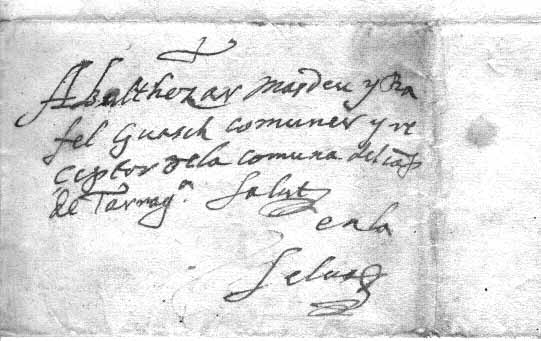 A balthezar masdeu y Ra
fel Guasch comuner y re
ceptor dela comuna del cap
de Tarrag.ª Salut
en la
Selua